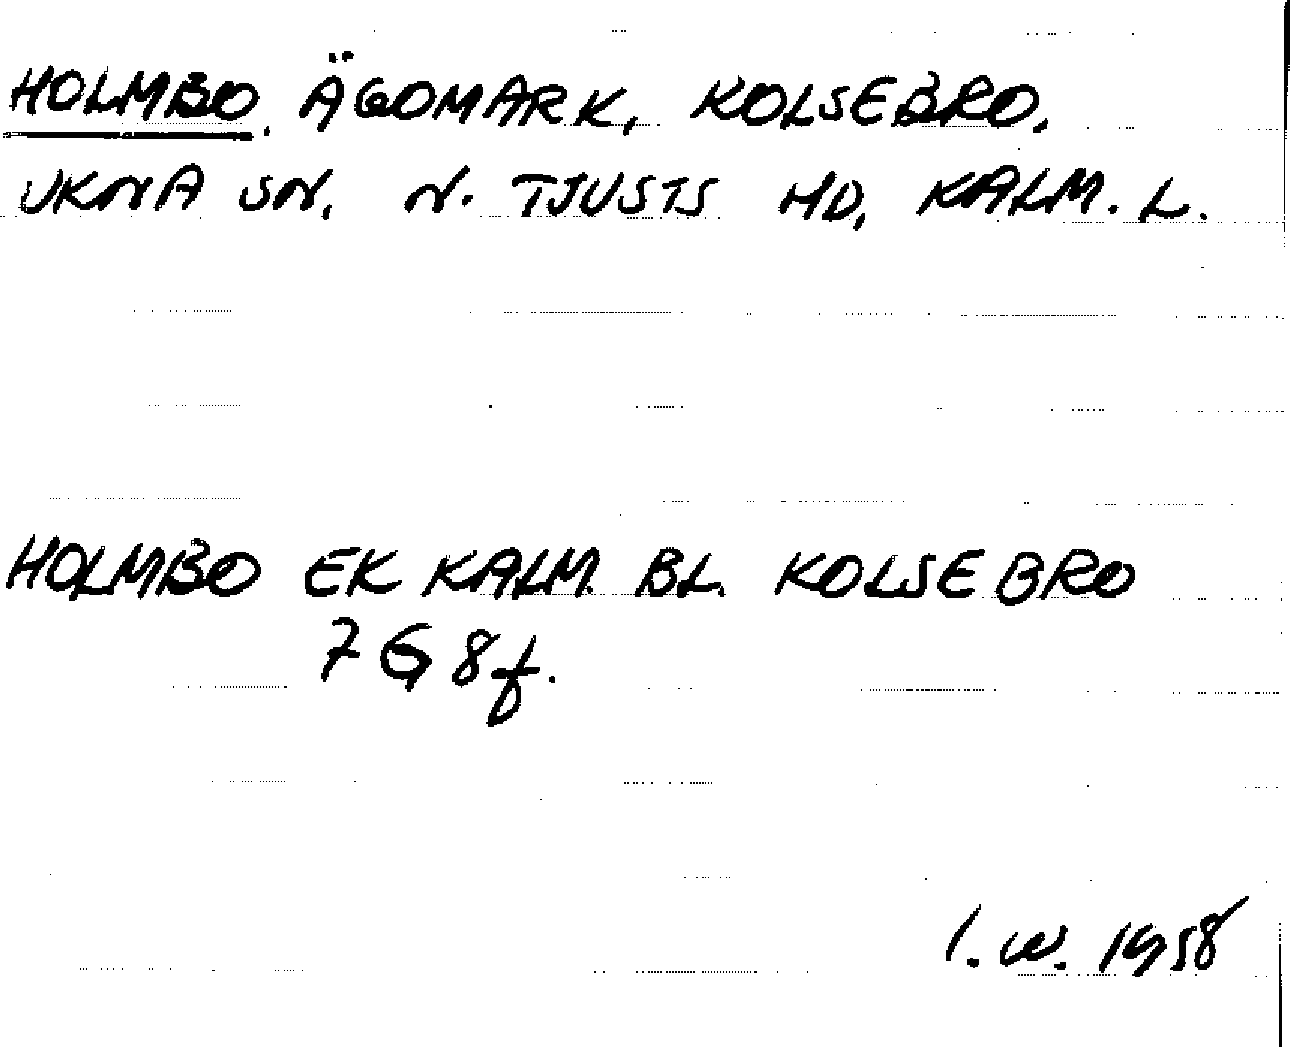 HOLMBO. ÄGOMARK, KOLSEBRO,
UKNA SN, N. TJUSTS HD, KALM. L.
HOLMBO EK KALM. BL. KOLSEBRO
7G8f.
I.W. 1958